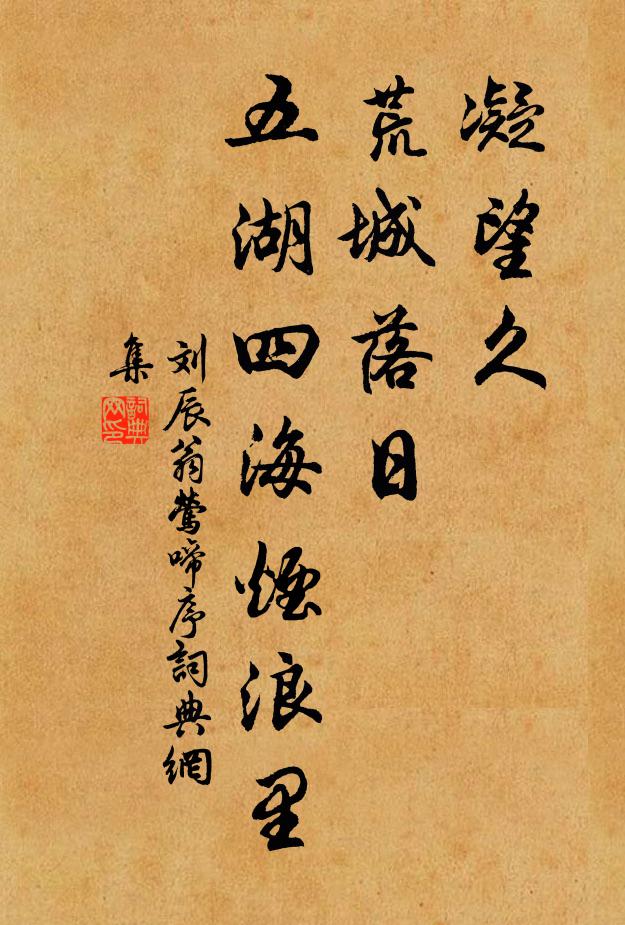 凝望久
荒城落日
五湖四海煙浪里
刘辰翁莺啼序詞典網
集
詞典
网印